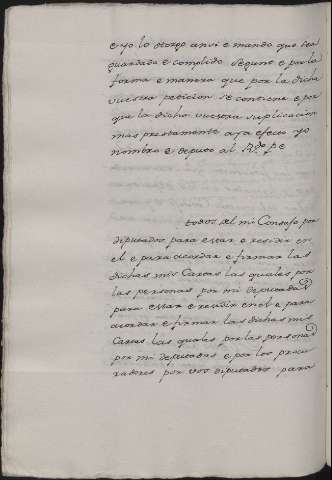 e yo lo otorgo ansi e mando que sea
guardado e complido segunt e por la
forma e manera que por la dicha
vuestra peticion se contiene e por
que la dicha vuestra suplicacion
mas prestamente aya efecto yo
nombro e deputo al R.do P.e
todos del mi Consejo por
diputados para estar e residir en
el e para acordar e firmar las
dichas mis Cartas las quales por
las personas por mi deputadas
para estar e residir en el e para
acordar e firmar las dichas mis
Cartas las quales por las personas
por mi deputadas e por los procu
radores por vos diputados para